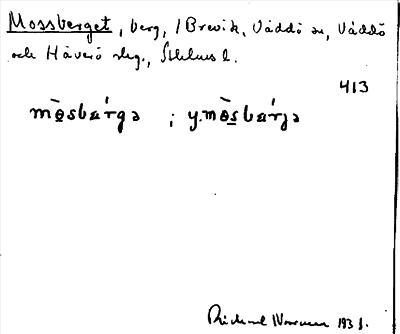 Mossberget, berg, i Brevik, Väddö sn, Väddö
och Häverö slg., Sthlms l.
413
mo̱sbærgə ; y.mo̱sbærjə
Rickard 193